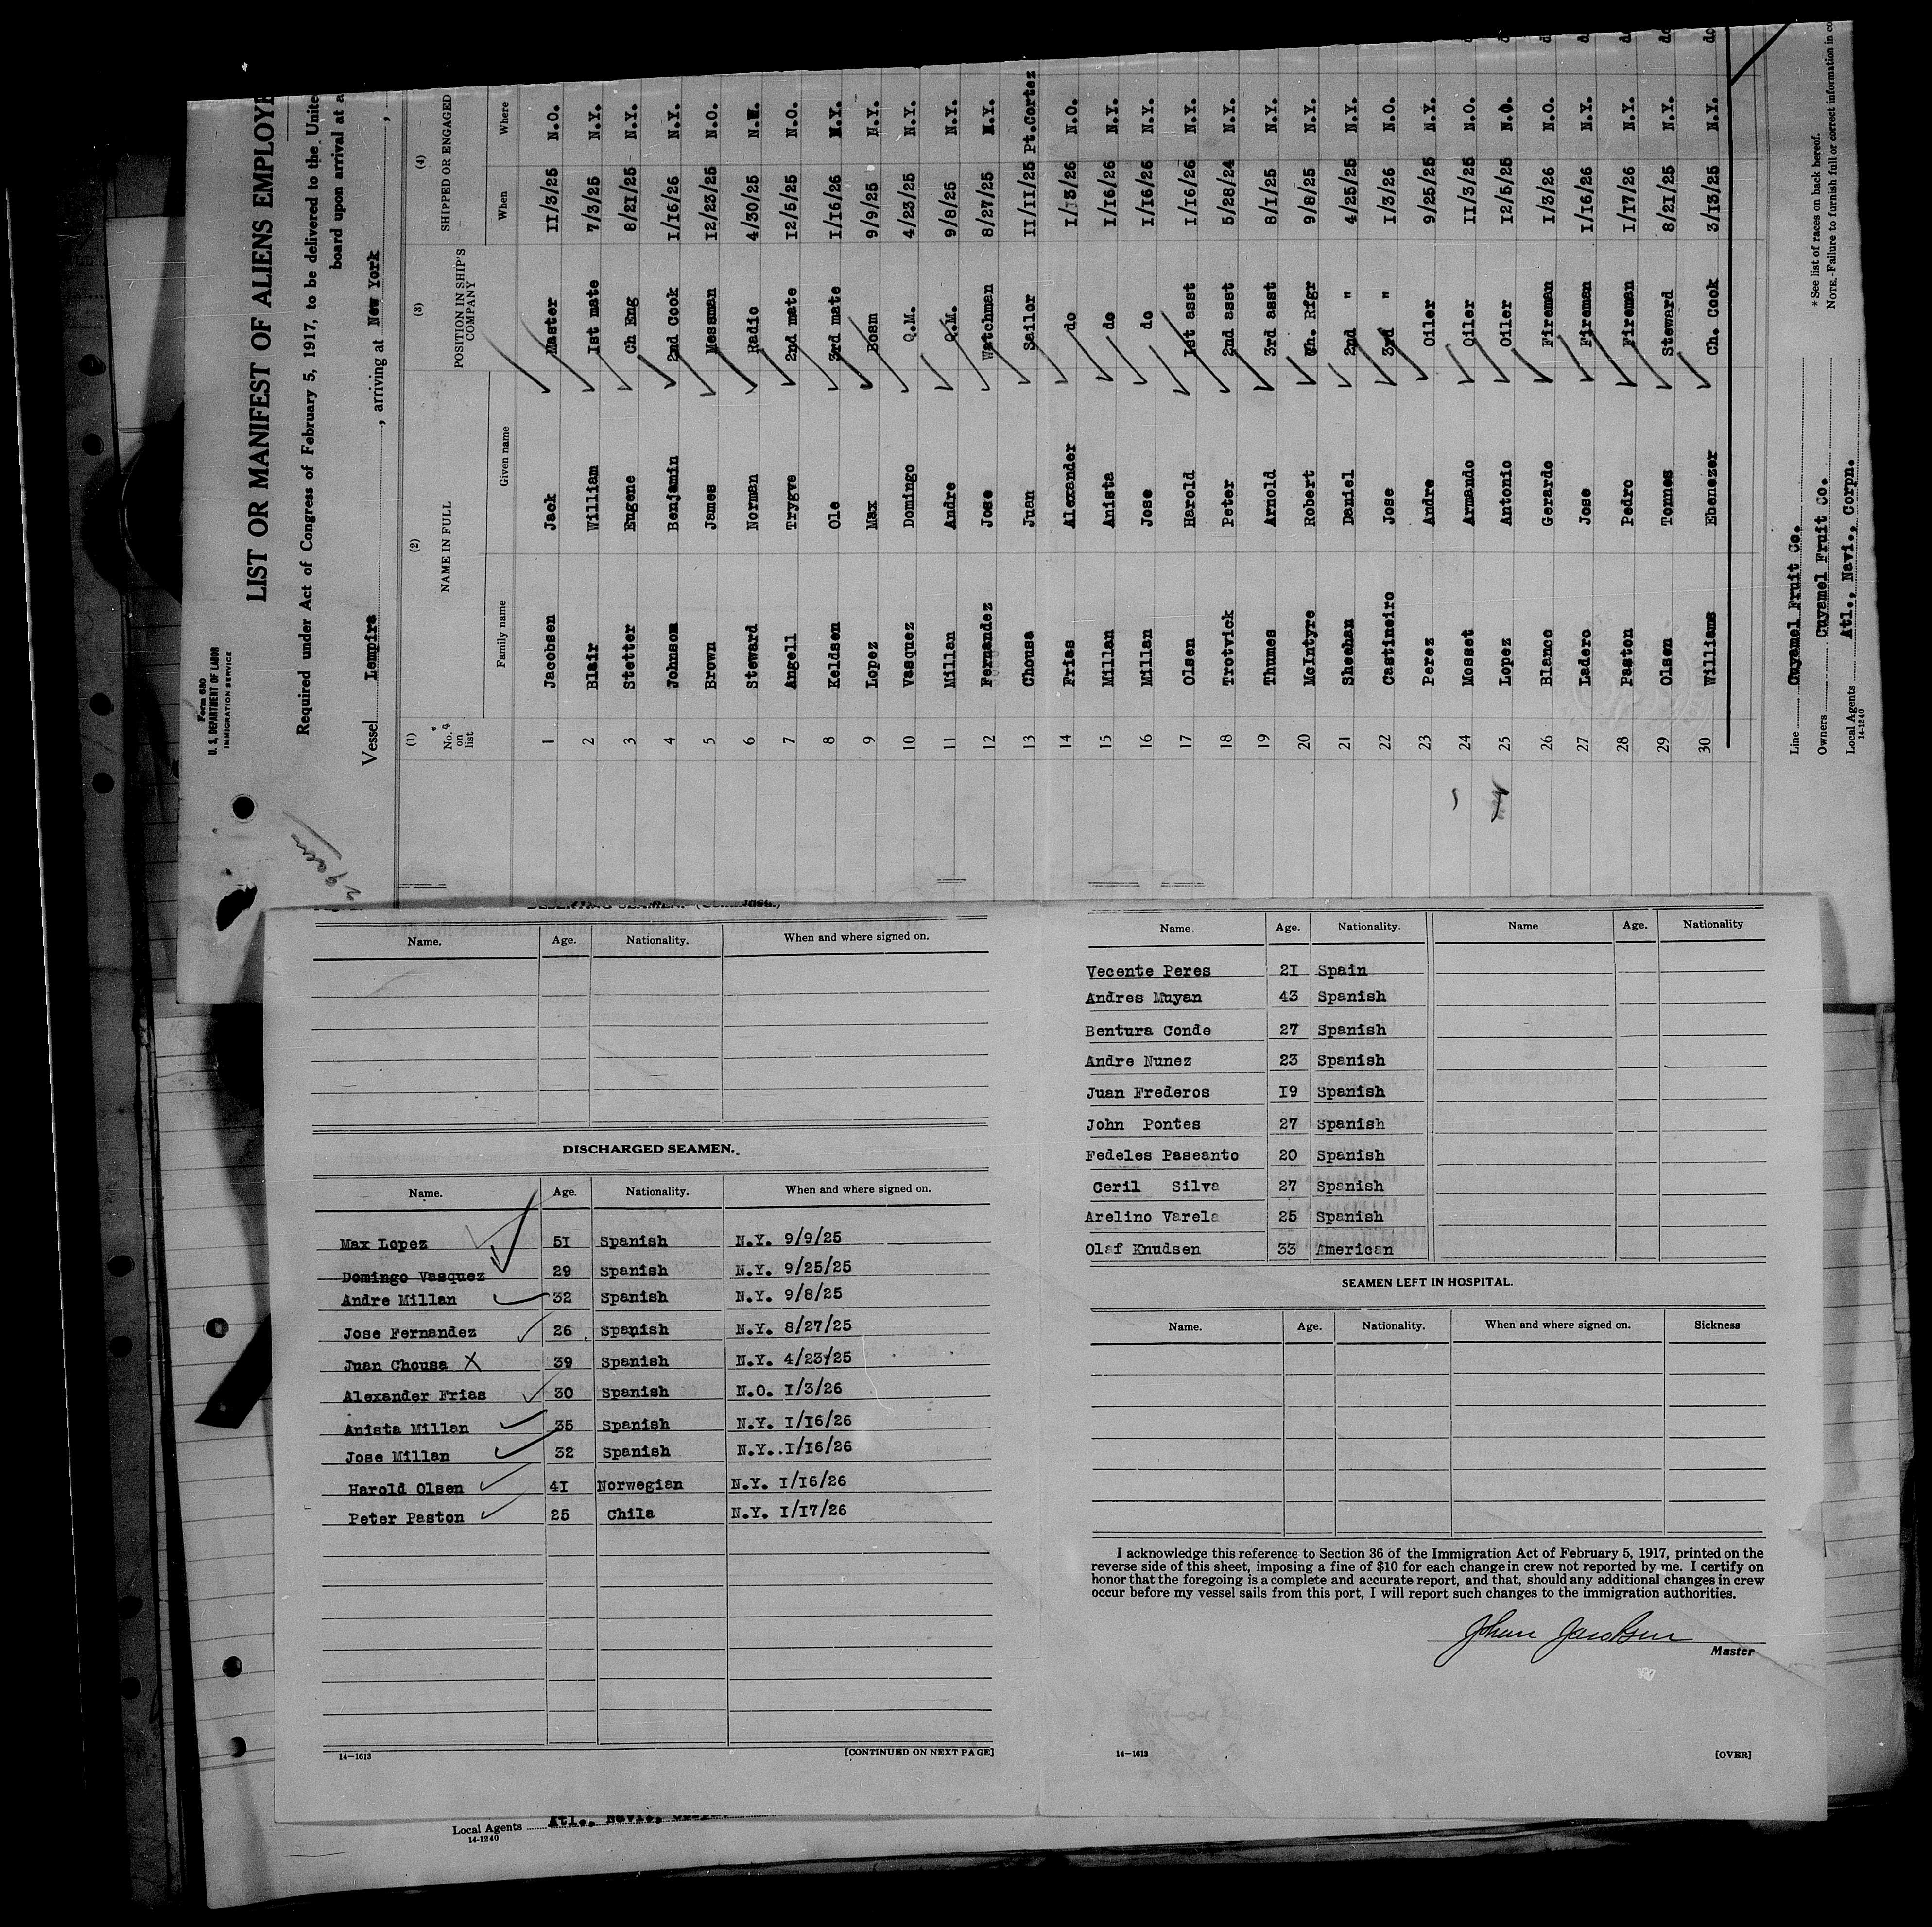 Form 680
U. S. DEPARTMENT OF LABOR
IMMIGRATION SERVICE
LIST OR MANIFEST OF ALIENS EMPLOYE
Required under Act of Congress of February 5, 1917, to be delivered to the Unite
board upon arrival at a
Vessel Lempira, arriving at New York,
(1) (2) (3) (4)
No. on list NAME IN FULL POSITION IN SHIP'S COMPANY SHIPPED OR ENGAGED
Family name Given name When Where
1 Jacobsen Jack Master 11/3/25 N.O.
2 Blair William 1st mate 7/3/25 N.Y.
3 Stetter Eugene Ch Eng 8/21/25 N.Y.
4 Johnson Benjamin 2nd Cook 1/16/26 N.Y.
5 Brown James Messman 12/23/25 N.O.
6 Steward Norman Radio 4/30/25
7 Angell Trygve 2nd mate 12/5/25 N.O.
8 Keldsen Ole 3rd mate 1/16/26 N.Y.
9 Lopez Max Bosm 9/9/25 N.Y.
10 Vasquez Domingo Q.M. 4/23/25 N.Y.
11 Millan Andre Q.M. 9/8/25 N.Y.
12 Fernandez Jose Watchman 8/27/25 N.Y.
13 Chousa Juan Sailor 11/11/25 Pt.Cortez
14 Frias Alexander do 1/3/26 N.O.
15 Millan Anista do 1/16/26 N.Y.
16 Millan Jose do 1/16/26 N.Y.
17 Olsen Harold 1st asst 1/16/26 N.Y.
18 Trotvick Peter 2nd asst 5/28/24 N.Y.
19 Thumes Arnold 3rd asst 8/1/25 N.Y.
20 McIntyre Robert Ch. Rfgr 9/8/25 N.Y.
21 Sheehan Daniel 2nd " 4/25/25 N.Y.
22 Castineiro Jose 3rd " 1/3/26 N.O.
23 Perez Andre Oiler 9/25/25 N.Y.
24 Mosset Armando Oiler 11/3/25 N.O.
25 Lopez Antonio Oiler 12/5/25 N.O.
26 Blanco Gerardo Fireman 1/3/26 N.O.
27 Ladero Jose Fireman 1/16/26 N.Y.
28 Paston Pedro Fireman 1/17/26 N.Y.
29 Olsen Tonnes Steward 8/21/25 N.Y.
30 Williams Ebenezer Ch. Cook 3/13/25 N.Y.
Line Cuyamel Fruit Co.
Owners Cuyamel Fruit Co.
Local Agents Atl., Navi., Corpn.
14-1240
* See list of races on back hereof.
NOTE.-Failure to furnish full or correct information in co
Name. Age. Nationality. When and where signed on.
DISCHARGED SEAMEN.
Name. Age. Nationality. When and where signed on.
Max Lopez 51 Spanish N.Y. 9/9/25
Domingo Vasquez 29 Spanish N.Y. 9/25/25
Andre Millan 32 Spanish N.Y. 9/8/25
Jose Fernandez 26 Spanish N.Y. 8/27/25
Juan Chousa X 39 Spanish N.Y. 4/23/25
Alexander Frias 30 Spanish N.O. 1/3/26
Anista Millan 35 Spanish N.Y. 1/16/26
Jose Millan 32 Spanish N.Y..1/16/26
Harold Olsen 41 Norwegian N.Y. 1/16/26
Peter Paston 25 Chila N.Y. 1/17/26
14—1613
[CONTINUED ON NEXT PAGE]
Name. Age. Nationality. Name Age. Nationality
Vecente Peres 21 Spain
Andres Muyan 43 Spanish
Bentura Conde 27 Spanish
Andre Nunez 23 Spanish
Juan Frederos 19 Spanish
John Pontes 27 Spanish
Fedeles Paseanto 20 Spanish
Ceril Silva 27 Spanish
Arelino Varela 25 Spanish
Olaf Knudsen 33 American
SEAMEN LEFT IN HOSPITAL.
Name. Age. Nationality. When and where signed on. Sickness
I acknowledge this reference to Section 36 of the Immigration Act of February 5, 1917, printed on the
reverse side of this sheet, imposing a fine of $10 for each change in crew not reported by me. I certify on
honor that the foregoing is a complete and accurate report, and that, should any additional changes in crew
occur before my vessel sails from this port, I will report such changes to the immigration authorities.
Johan Jacobsen
Master
14—1613
[OVER]
Local Agents Atl., Navi.,
14-1240